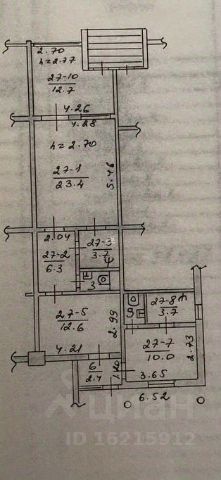 2.70
h=2.77
27-10
12.7
4.26
4.28
h=2.70
27-1
23.4
5.46
2.04
27-2
6.3
27-3
4
3
27-5
12.6
2.99
4.21
6
2.4
1.20
27-8
3.7
5
27-7
10.0
2.73
3.65
6.52
циан
ID 16215912